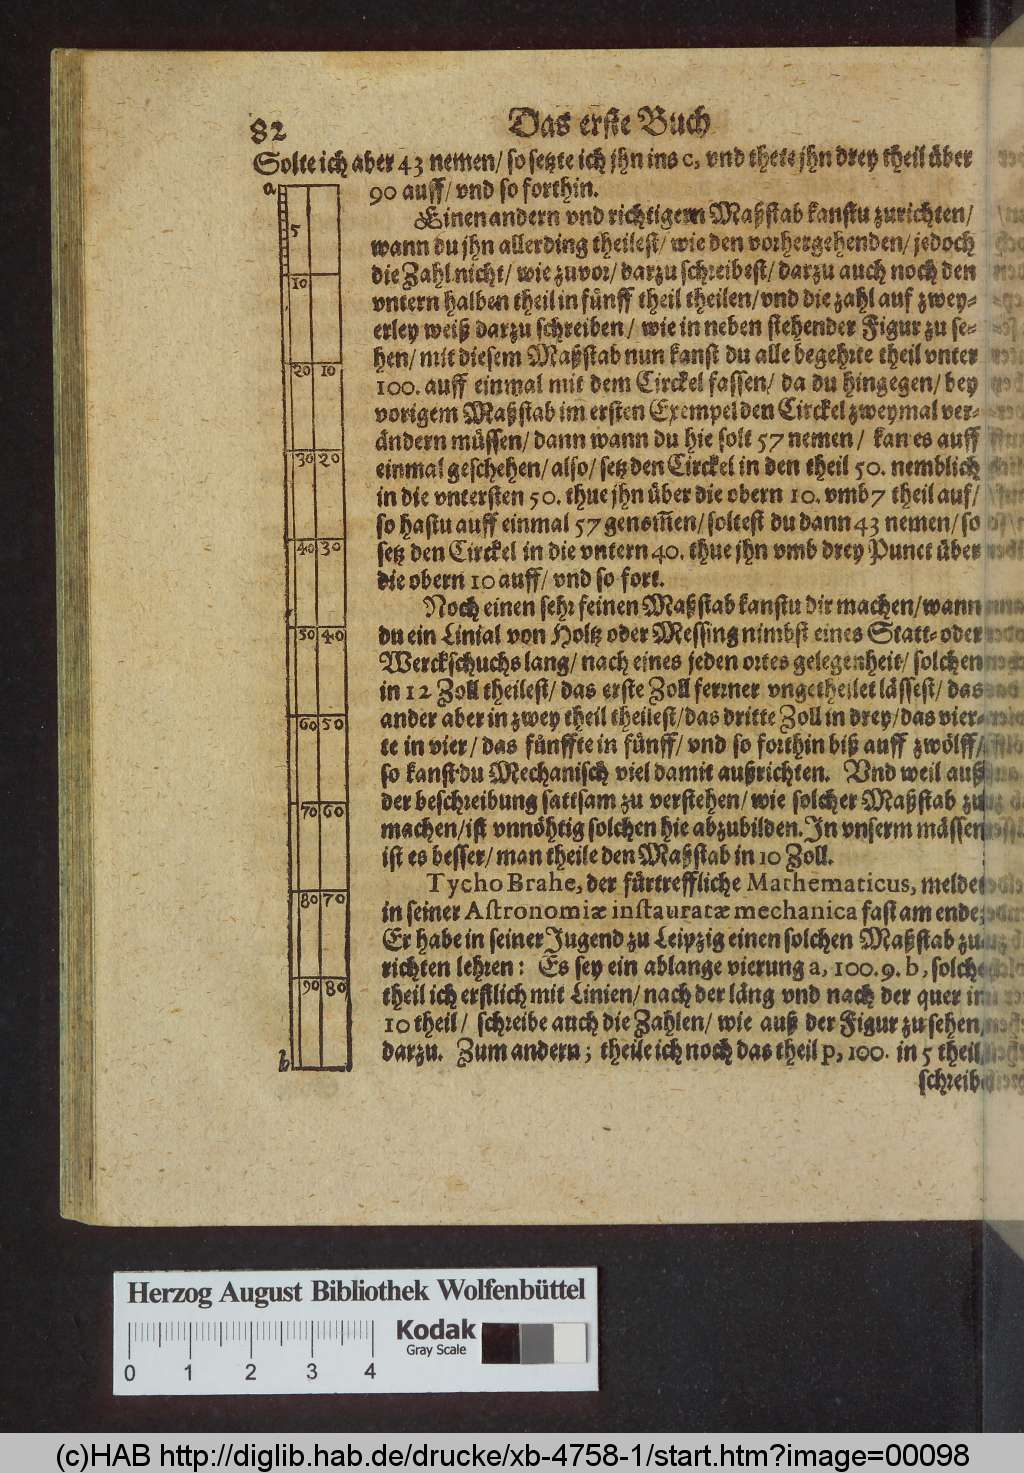 82
Das erste Buch
Solte ich aber 43 nemen/ so setzte ich jhn ins c, vnd thete jhn drey theil über
90 auff/ vnd so forthin.
Einen andern vnd richtigern Maßstab kanstu zurichten/
wann du jhn allerding theilest/ wie den vorhergehenden/ jedoch
die Zahl nicht/ wie zuvor/ darzu schreibest/ darzu auch noch den
vntern halben theil in fünff theil theilen/ vnd die zahl auf zwey-
erley weiß darzu schreiben/ wie in neben stehender Figur zu se-
hen/ mit diesem Maßstab nun kanst du alle begehrte theil vnter
100. auff einmal mit dem Circkel fassen/ da du hingegen/ bey
vorigem Maßstab im ersten Exempel den Circkel zweymal ver-
ändern müssen/ dann wann du hie solt 57 nemen/ kan es auff
einmal geschehen/ also/ setz den Circkel in den theil 50. nemblich
in die vntersten 50. thue jhn über die obern 10. vmb 7 theil auf/
so hastu auff einmal 57 genom̄en/ soltest du dann 43 nemen/ so
setz den Circkel in die vntern 40. thue jhn vmb drey Punct über
die obern 10 auff/ vnd so fort.
Noch einen sehr feinen Maßstab kanstu dir machen/ wann
du ein Linial von Holtz oder Messing nimbst eines Statt- oder
Werckschuchs lang/ nach eines jeden ortes gelegenheit/ solchen
in 12 Zoll theilest/ das erste Zoll ferrner vngetheilet lässest/ das
ander aber in zwey theil theilest/ das dritte Zoll in drey/ das vier-
te in vier/ das fünffte in fünff/ vnd so forthin biß auff zwölff/
so kanst du Mechanisch viel damit außrichten. Vnd weil auß
der beschreibung sattsam zu verstehen/ wie solcher Maßstab zu
machen/ ist vnnöhtig solchen hie abzubilden. In vnserm mässen
ist es besser/ man theile den Maßstab in 10 Zoll.
Tycho Brahe, der fürtreffliche Mathematicus, meldet
in seiner Astronomiæ instauratæ mechanica fast am ende:
Er habe in seiner Jugend zu Leipzig einen solchen Maßstab zu-
richten lehren: Es sey ein ablange vierung a, 100. 9. b, solche
theil ich erstlich mit Linien/ nach der läng vnd nach der quer in
10 theil/ schreibe auch die Zahlen/ wie auß der Figur zu sehen,
darzu. Zum andern; theile ich noch das theil p, 100. in 5 theil/
schreibe
a
5
10
20 10
30 20
40 30
50 40
60 50
70 60
80 70
90 80
b
Herzog August Bibliothek Wolfenbüttel
0 1 2 3 4
Kodak
Gray Scale
(c)HAB http://diglib.hab.de/drucke/xb-4758-1/start.htm?image=00098